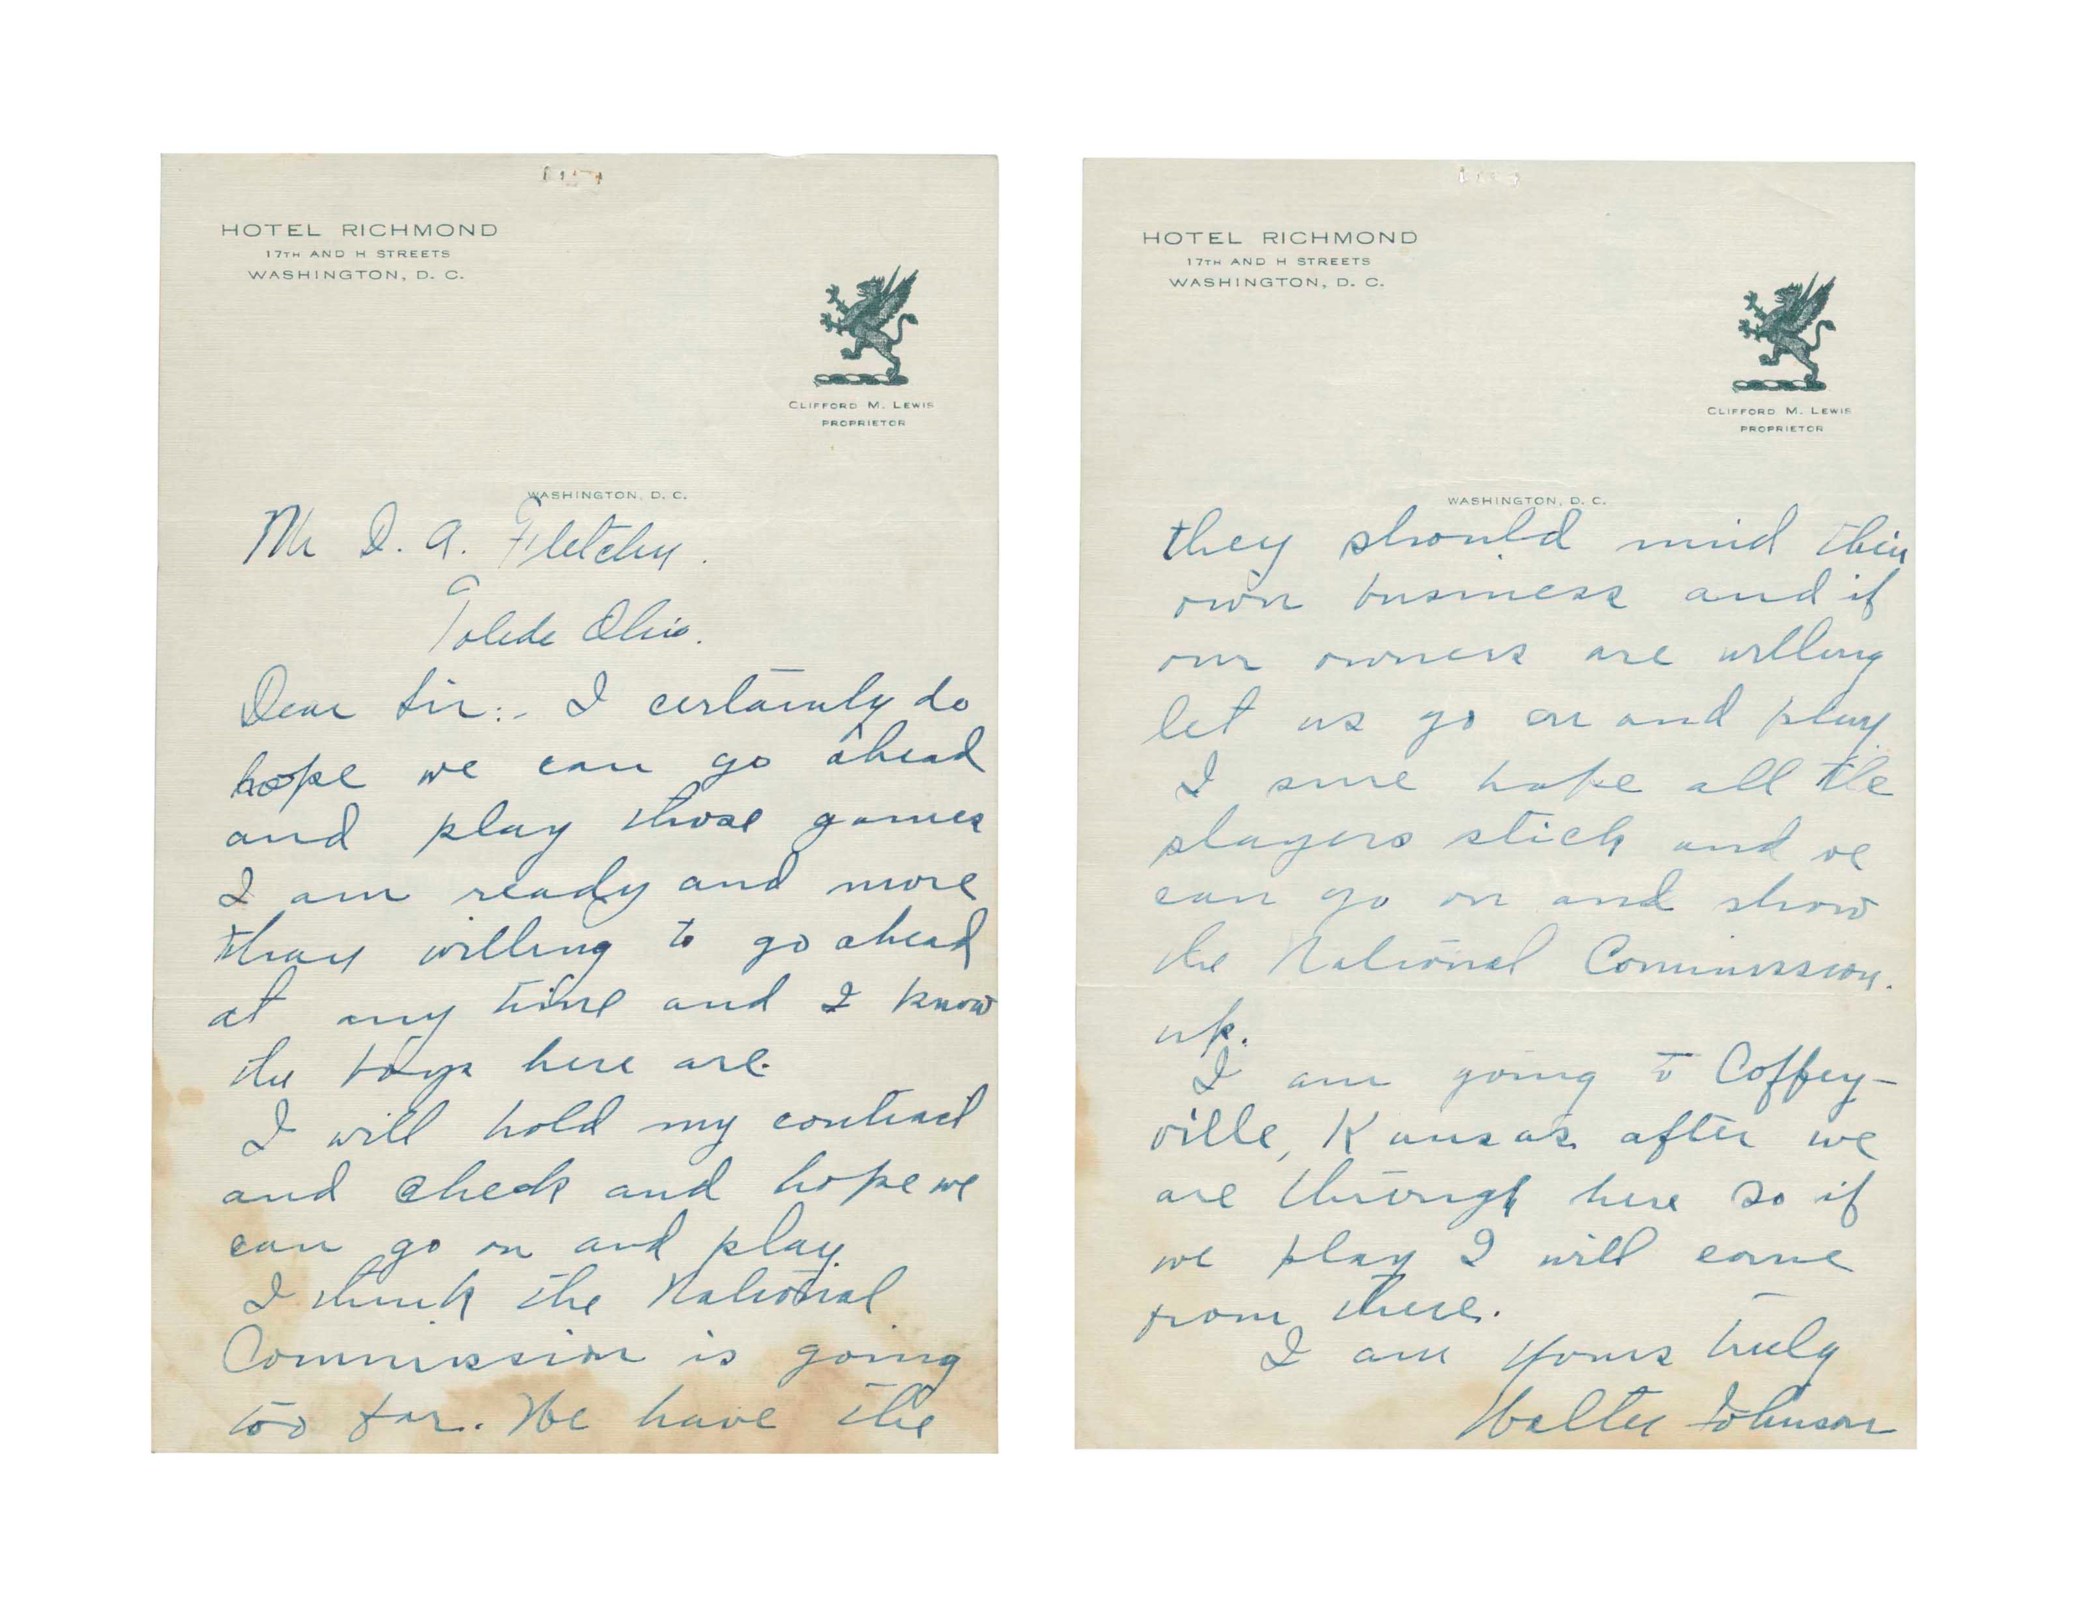 HOTEL RICHMOND
17TH AND H STREETS
WASHINGTON, D. C.
CLIFFORD M. LEWIS
PROPRIETOR
WASHINGTON, D. C.
Mr D. A. Fletcher.
Toledo Ohio.
Dear Sir:- I certainly do
hope we can go ahead
and play those games
I am ready and more
than willing to go ahead
at any time and I know
the boys here are.
I will hold my contract
and check and hope we
can go on and play.
I think the National
Commission is going
too far. We have the
HOTEL RICHMOND
17TH AND H STREETS
WASHINGTON, D. C.
CLIFFORD M. LEWIS
PROPRIETOR
WASHINGTON, D. C.
they should mind their
own business and if
our owners are willing
let us go on and play
I sure hope all the
players stick and we
can go on and show
the National Commission.
up.
I am going to Coffey-
ville, Kansas after we
are through here so if
we play I will come
from there.
I am yours truly
Walter Johnson